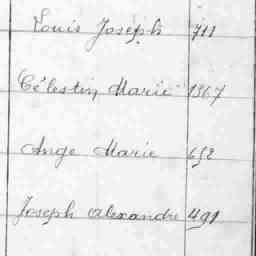 Louis Joseph 711
Célestin Marie 1367
Ange Marie 652
Joseph Alexandre 491